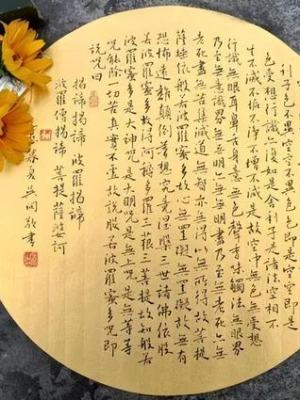 利子色不異空空不異色色即是空空即是
色受想行識亦復如是舍利子是諸法空相不
生不滅不垢不淨不增不減是故空中無色無受想
行識無眼耳鼻舌身意無色聲香味觸法無眼界
乃至無意識界無無明亦無無明盡乃至無老死亦無
老死盡無苦集滅道無智亦無得以無所得故菩提
薩埵依般若波羅蜜多故心無罣礙無罣礙故無有
恐怖遠離顛倒夢想究竟涅槃三世諸佛依般
若波羅蜜多故得阿耨多羅三藐三菩提故知般若
波羅蜜多是大神咒是大明咒是無上咒是無等等
咒能除一切苦真實不虛故說般若波羅蜜多咒即
說咒曰
揭諦揭諦 波羅揭諦
波羅僧揭諦 菩提薩婆訶
春月吳敬書